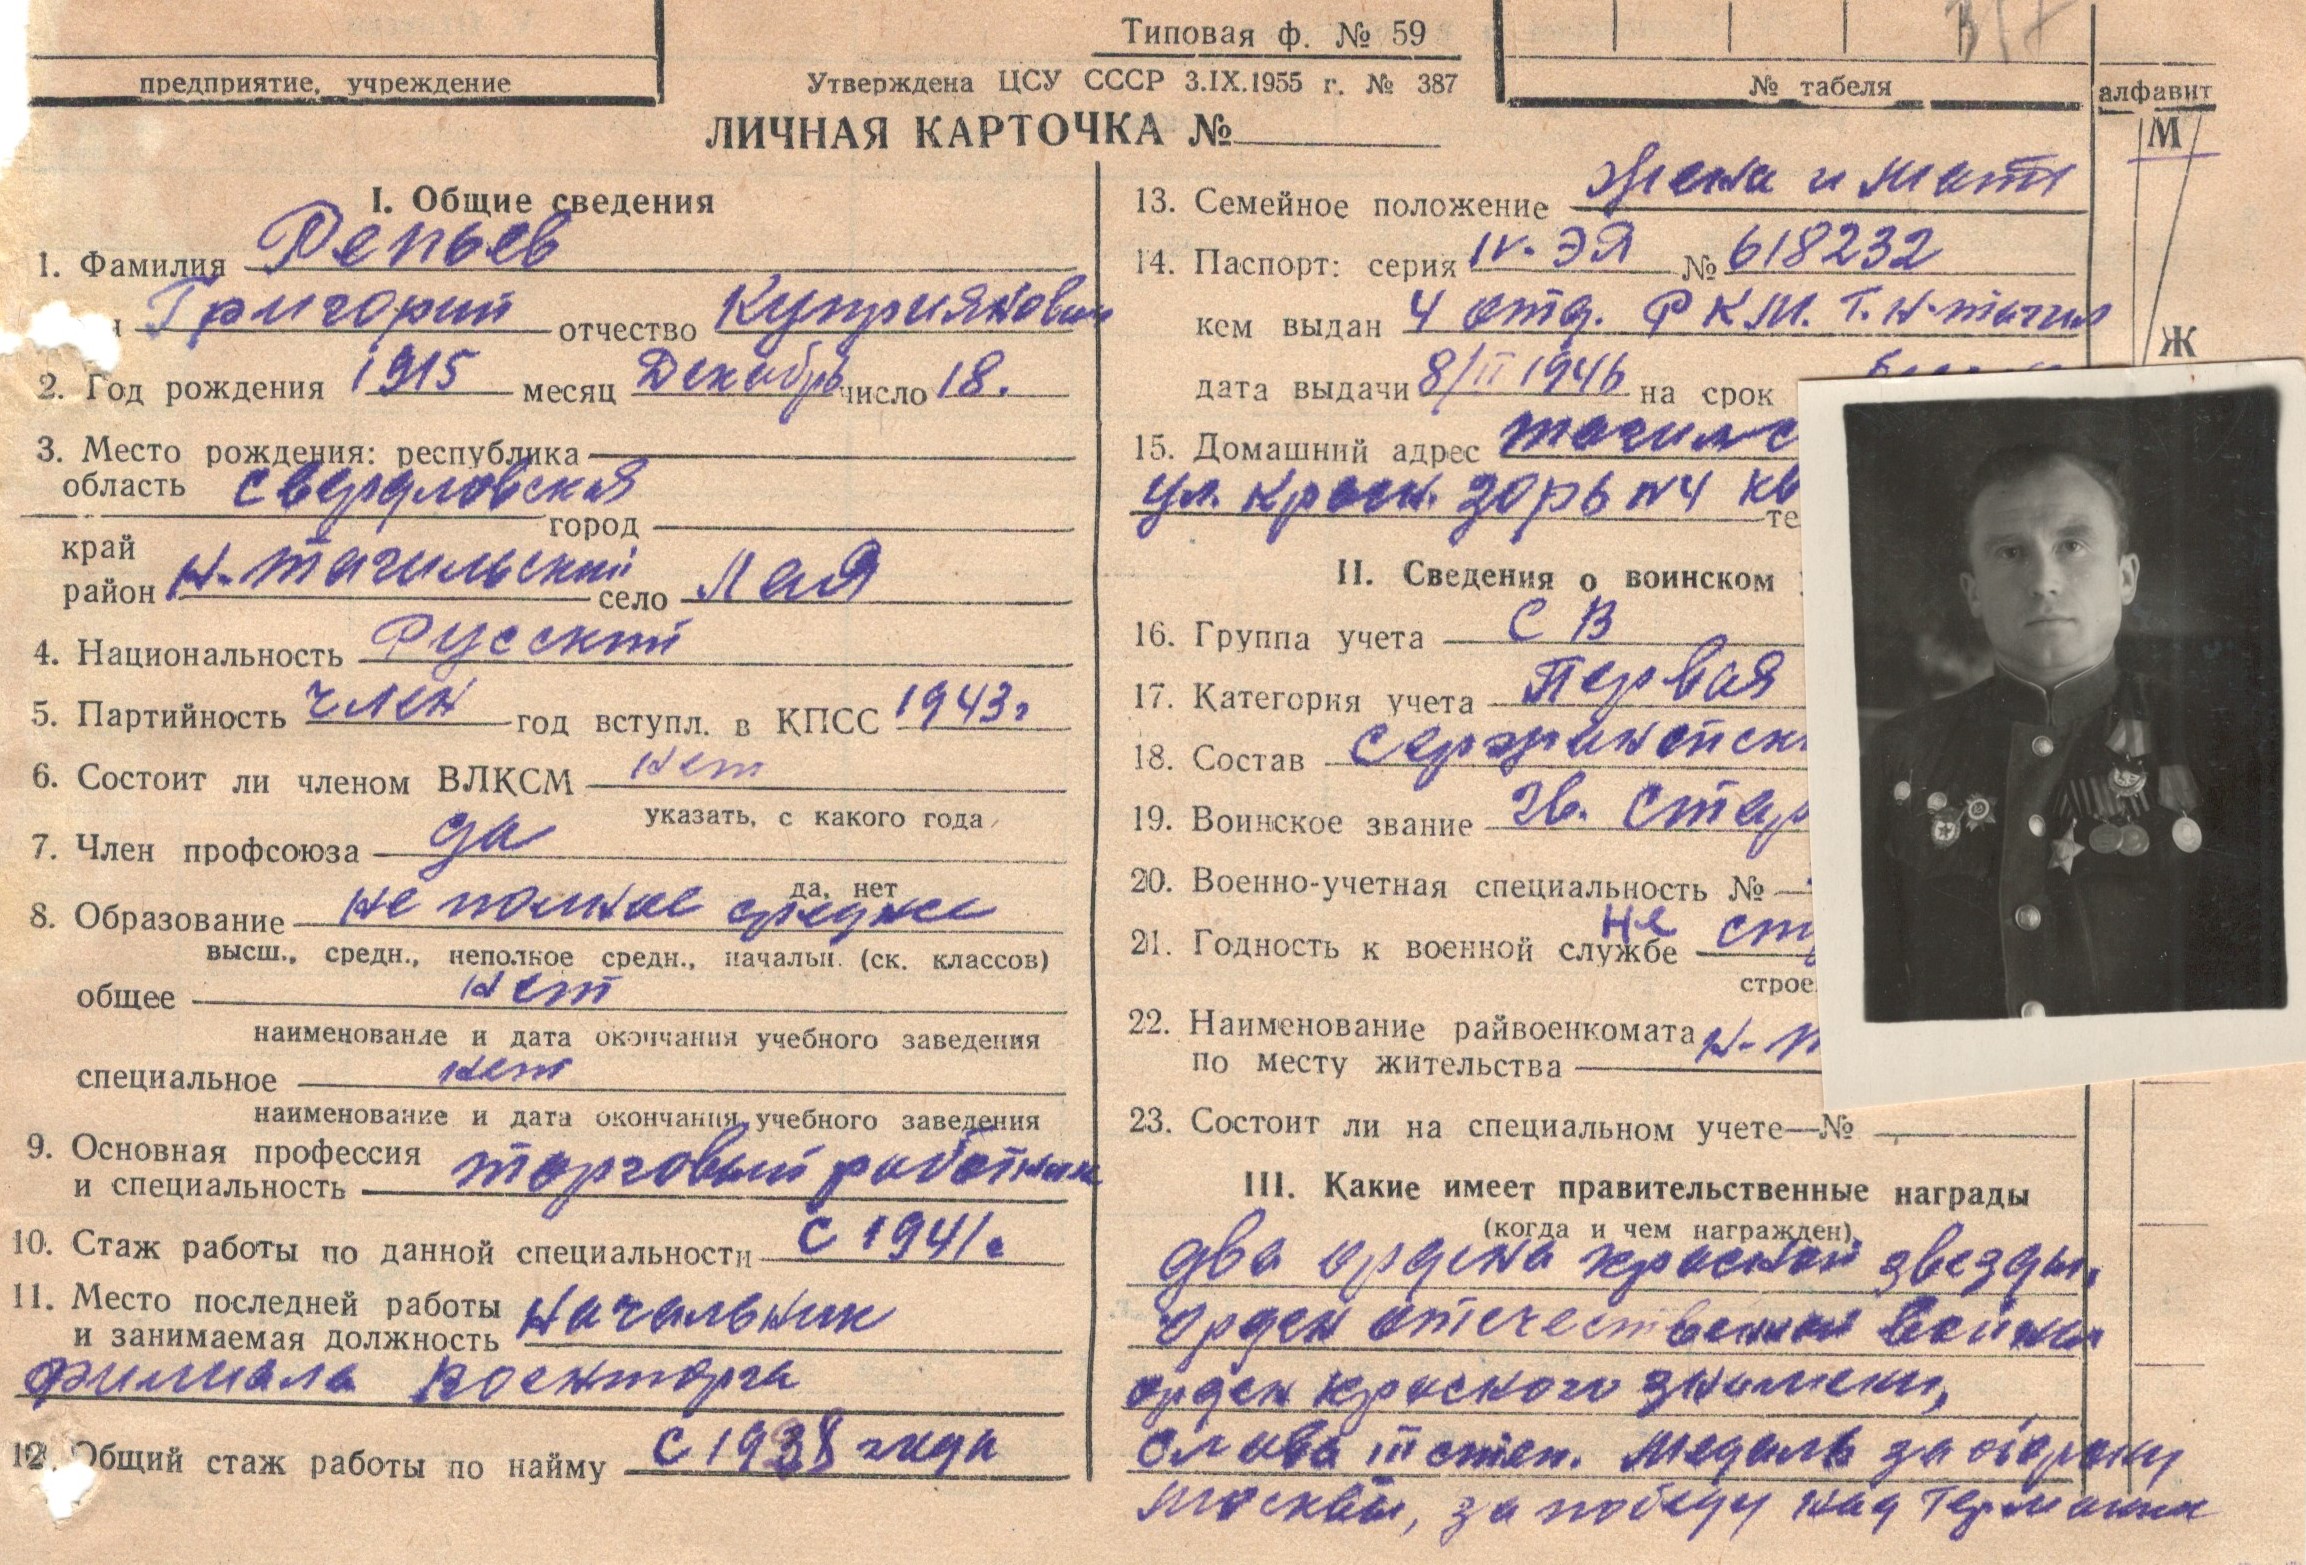 Типовая ф. № 59
предприятие, учреждение
Утверждена ЦСУ СССР 3.IX.1955 г. № 387
№ табеля
алфавит
ЛИЧНАЯ КАРТОЧКА №
М
Ж
I. Общие сведения
1. Фамилия Репьев
Григорий отчество Куприянович
2. Год рождения 1915 месяц Декабрь число 18.
3. Место рождения: республика
область Свердловская
город
край
район Н-Тагильский село Лая
4. Национальность Русский
5. Партийность член год вступл. в КПСС 1943г
6. Состоит ли членом ВЛКСМ нет
указать, с какого года
7. Член профсоюза да
да, нет
8. Образование не полное среднее
высш., средн., неполное средн., начальн. (ск. классов)
общее нет
наименование и дата окончания учебного заведения
специальное нет
наименование и дата окончания учебного заведения
9. Основная профессия
и специальность торговый работник
10. Стаж работы по данной специальности с 1941г
11. Место последней работы
и занимаемая должность начальник
филиала Военторга
12. Общий стаж работы по найму с 1938 года
13. Семейное положение Жена и мать
14. Паспорт: серия IV-ЭЯ № 618232
кем выдан 4 отд. РКМ. Г. Н-Тагил
дата выдачи 8/II 1946 на срок
15. Домашний адрес
ул. Красн. Зорь №4 кв
те
II. Сведения о воинском
16. Группа учета СВ
17. Категория учета Первая
18. Состав Сержантск
19. Воинское звание Гв. Стар
20. Военно-учетная специальность №
21. Годность к военной службе Не
строе
22. Наименование райвоенкомата
по месту жительства Н-
23. Состоит ли на специальном учете—№
III. Какие имеет правительственные награды
(когда и чем награжден)
два ордена красной звезды,
орден отечественной войны
орден красного знамени,
Слава III степ. Медаль за оборону
Москвы, за победу над Германии